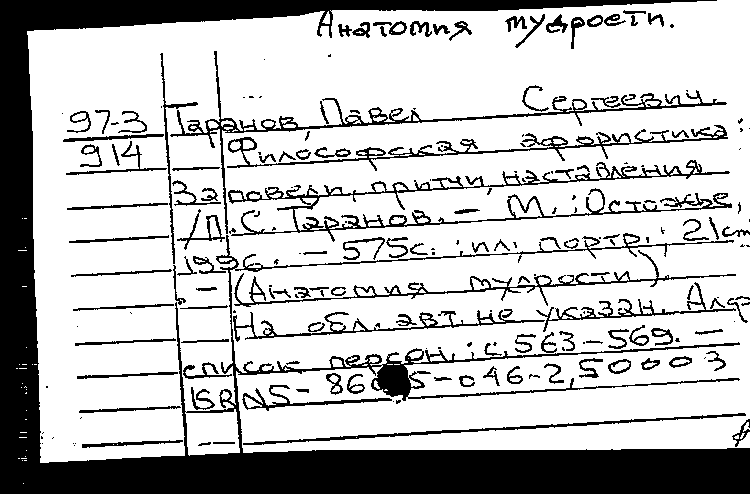 Анатомия мудрости.
97-3 Таранов, Павел Сергеевич.
914 Философская афористика:
Заповеди, притчи, наставления
/П.С. Таранов. – М.: Остожье,
1996. – 575с.: ил., портр.; 21см
. – (Анатомия мудрости).
На обл. авт. не указан. Алф
список персон.: с. 563-569. –
ISBN 5-86095-046-2, 50000 3